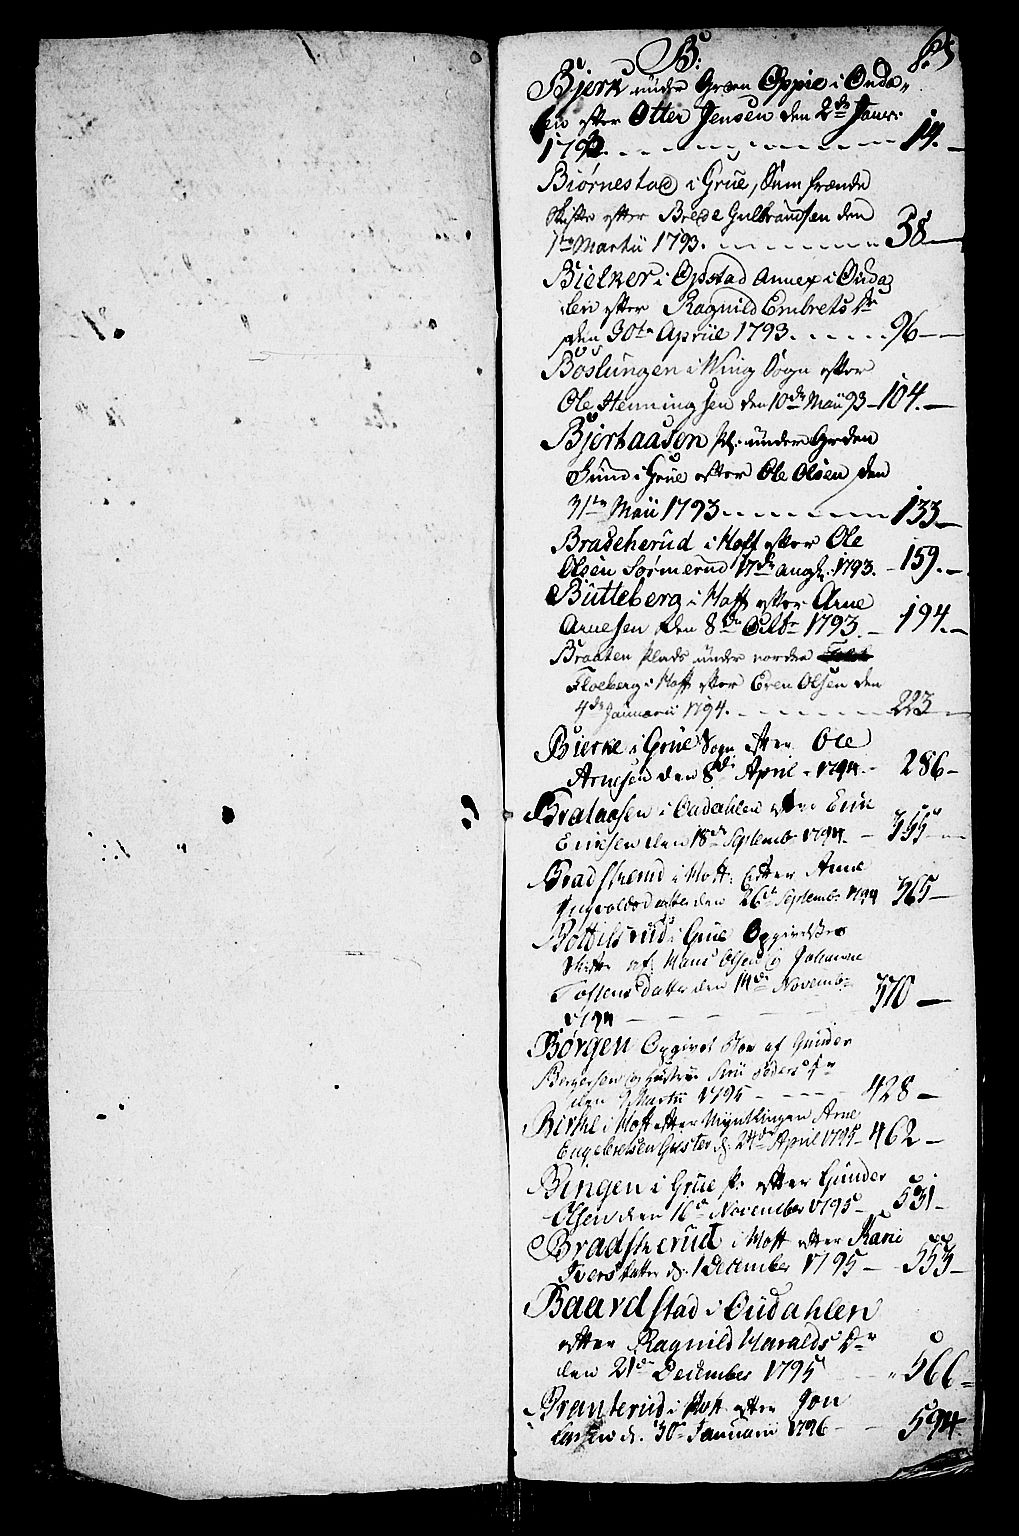 B:
Bjerk under Græn Oppie i Ouda„
len efter Otter Jensen den 2de Janr:
1793. 14.
Biørnestad i Grue, Sum frænde
Skifte efter Brede Gulbrandsen den
1te Martii 1793. 38
Bielker i Opstad Annex i Ouda
len efter Ragnild Embrets Dr
den 30te Apriil 1793. 96
Boslungen i Wing Sogn efter
Ole Henningsen den 10de Maii 93 104.
Bjerkaasen pl: under Grden
Sund i Grue efter Ole Olsen den
31te Maii 1793 133
Bradeherud i Hoff efter Ole
Olsen Sørmerud 17de augt: 1793. 159.
Butteberg i Hoff efter Arne
Arnesen den 8de Octbr 1793. 194.
Braaten plads under nordre
Floeberg i Hoff efter Even Olsen den
4de Januarii 1794. 223
Bierke i Grue Sogn efter Ole
Arnesen den 8de April 1794. 286
Brataasen i Oudahlen efter Erik
Ericsen den 18de Septemb 1794. 355
Bradskerud i Hoff. Efter Anne
Ingvoldsdatter den 26de Septembr 1794 365
Bottilsrud i Grue Opgivelses
Skifte af Hans Olsen og Johanne
Tostensdatter den 14de Novembr
1794 370
Børgen Opgivet Boe af Gunder
Bergersen og Hustrue Siri Peders Dr
den 9 Martii 1795 428
Birke i Hoff efter Myntklingen Arne
Engebretsen Gut­ster d. 24de April 1795 462
Bingen i Grue pl. efter Gunder
Olsen den 16de November 1795 531
Bradskerud i Hoff efter Kari
Iversdatter d. 1 December 1795 553
Baardstad i Oudahlen
efter Ragnild Haralds Dr
den 21de December 1795 566
Branterud i Hoff efter Jon
Larsen d. 30te Januarii 1796 594